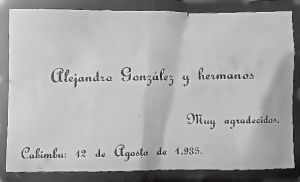 Alejandro González y hermanos
Muy agradecidos.
Cabimbu: 12 de Agosto de 1.935.